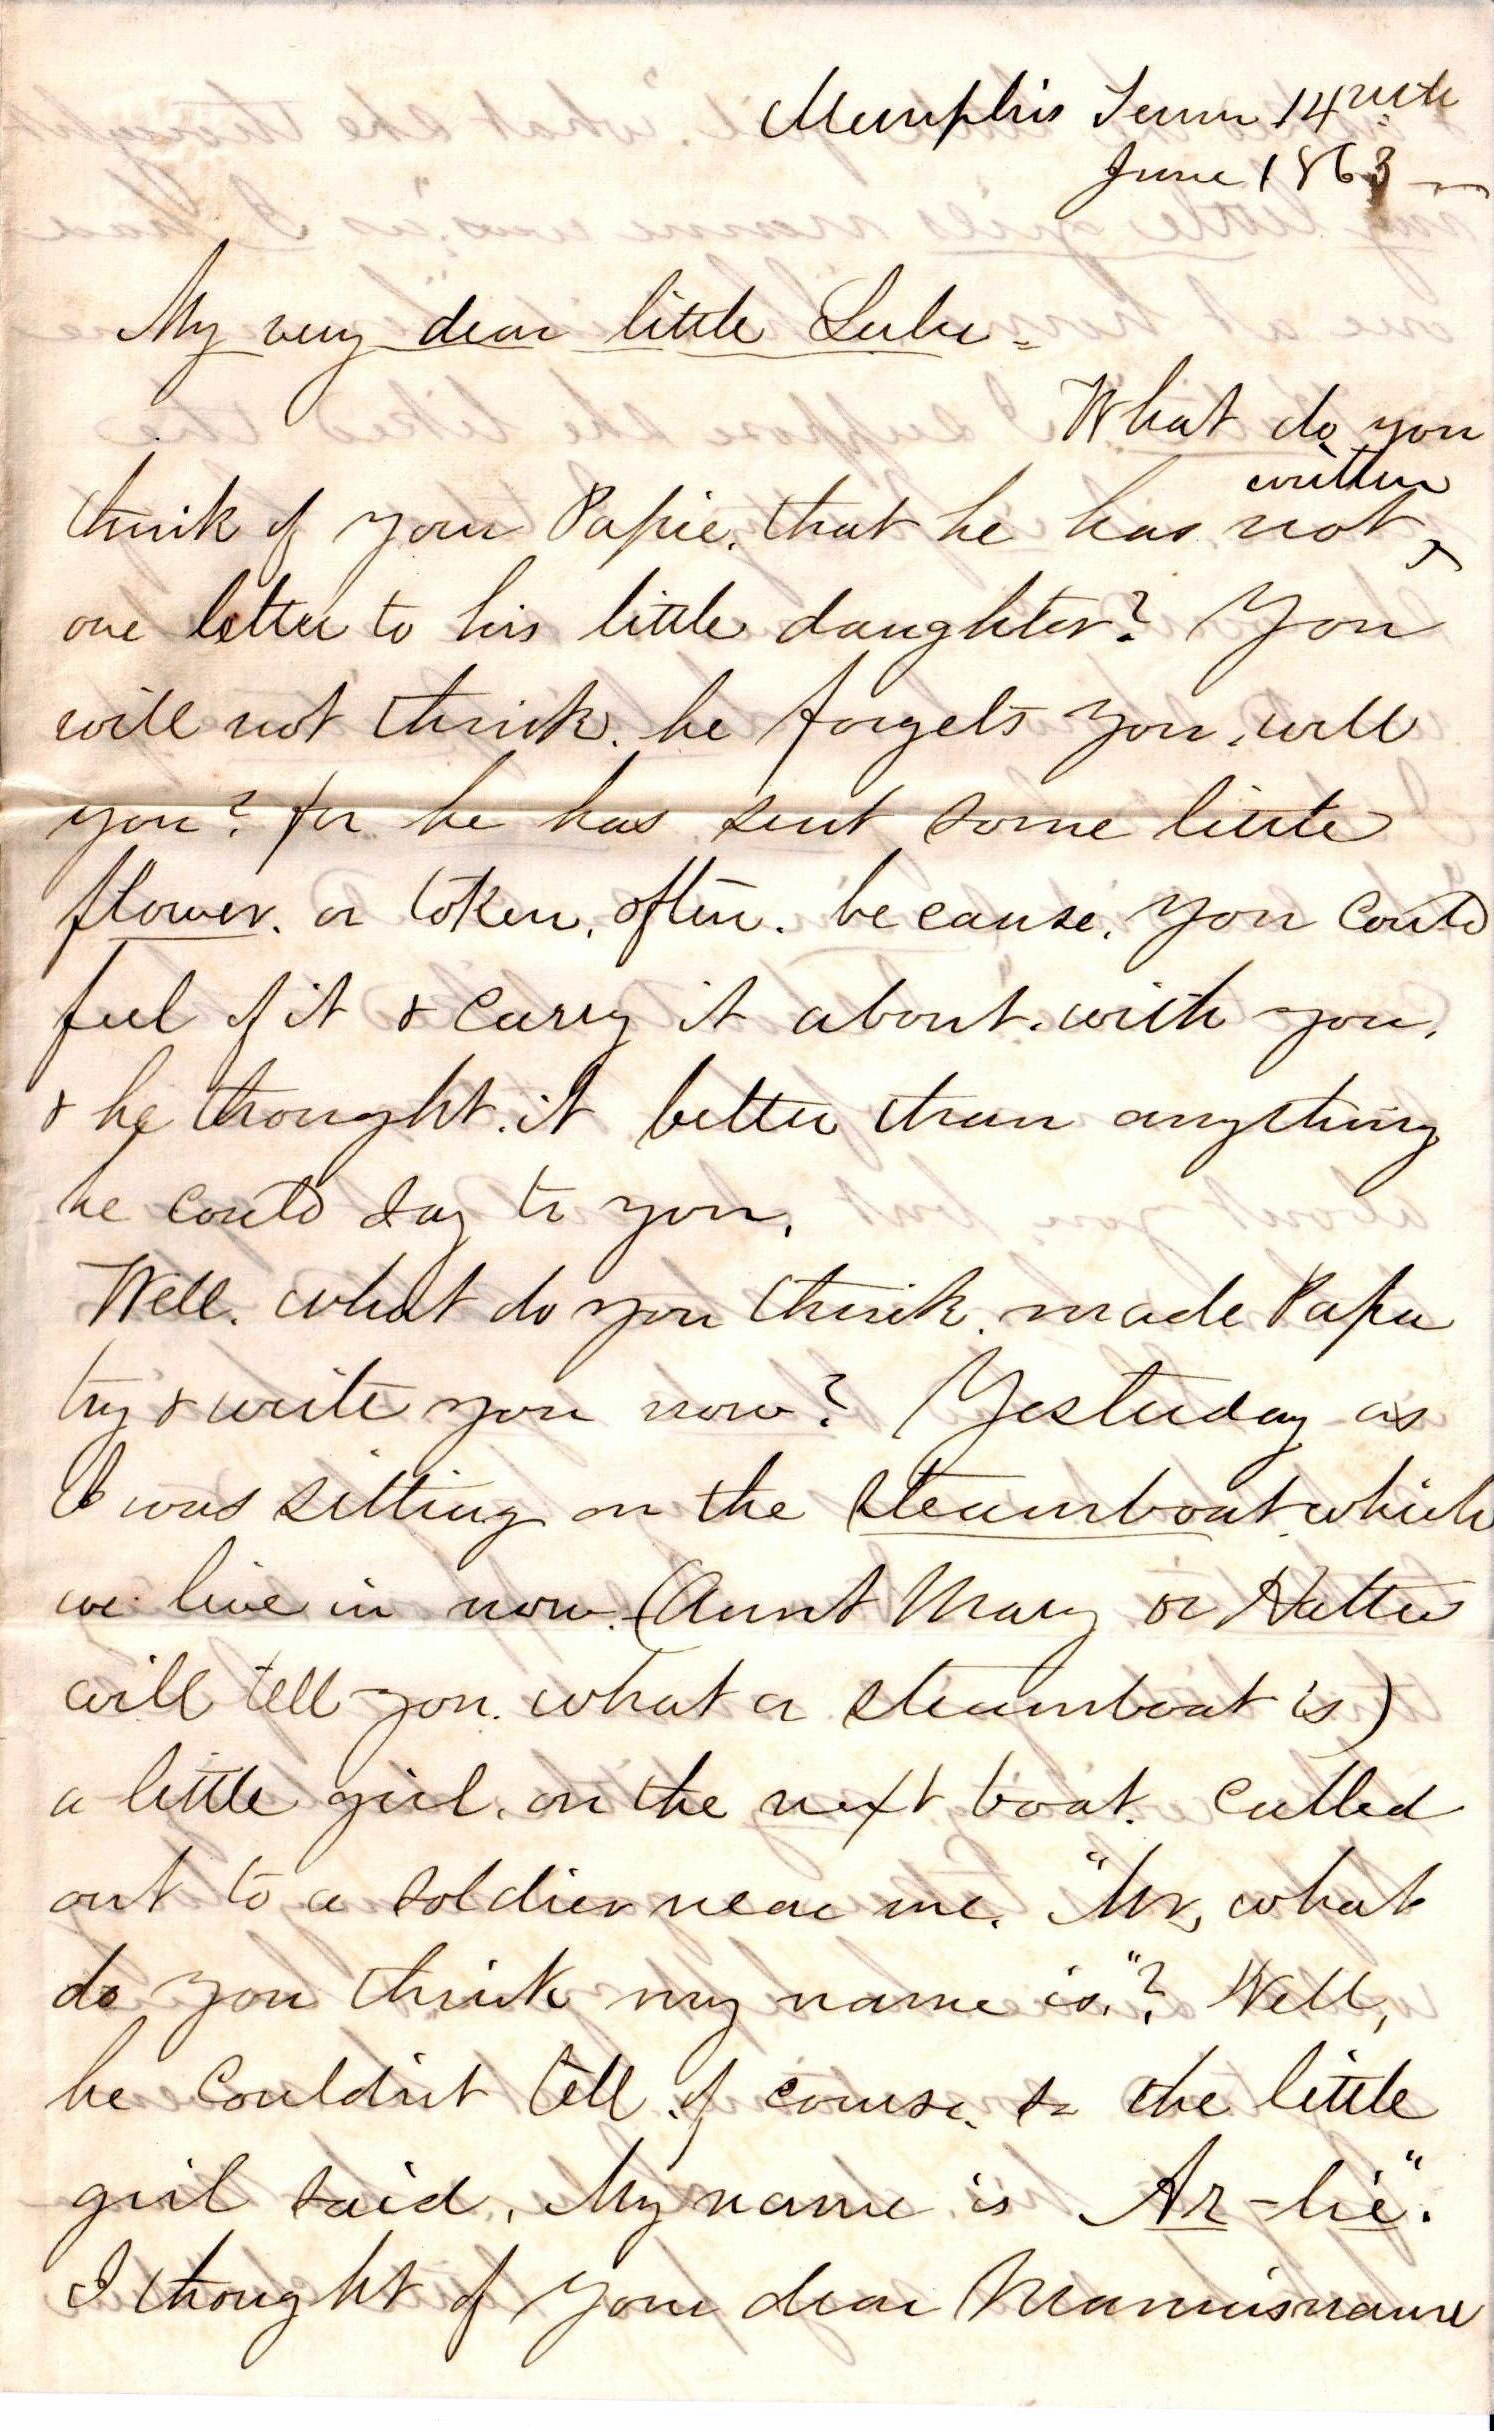 Memphis Tenn 14th
June 1863
My very dear little Lulu
What do you
written
think of your Papie. that he has not ^
one letter to his little daughter? You
will not think. he forgets you, will
you? for he has sent some little
flower. or token, often. because, you could
feel of it & carry it about. with you,
& he thought. it better than anything
he could say to you.
Well. what do you think. made Papa
try & write you now? Yesterday as
I was sitting on the steamboat which
we live in now. (Aunt Mary or Hattie
will tell you. what a steamboat is)
a little girl. on the next boat. called
out to a soldier near me. "Mr, what
do you think my name is."? Well,
he couldn't tell of course. so the little
girl said, My name is Ar-lie".
I thought of your dear Mamiesname